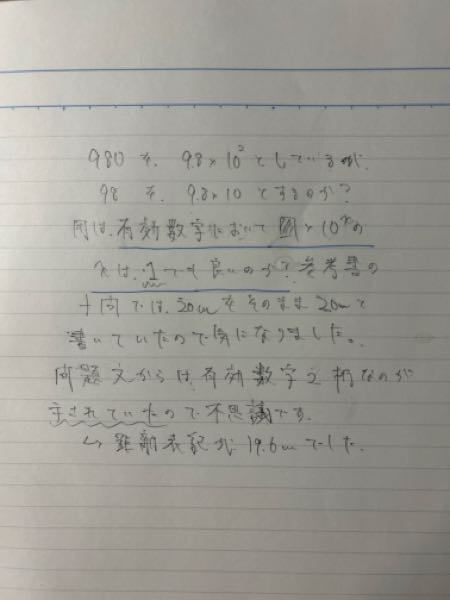 980を、9.8×10²としているが、
98を、9.8×10とするのか?
は、有効数字において ×10ⁿの
nは、1でも良いのか?参考書の
では、20mをそのまま20mと
書いていたので気になりました。
問題文からは、有効数字2桁なのが
示されていたので不思議です。
↳ 距離表記が19.6mでした。